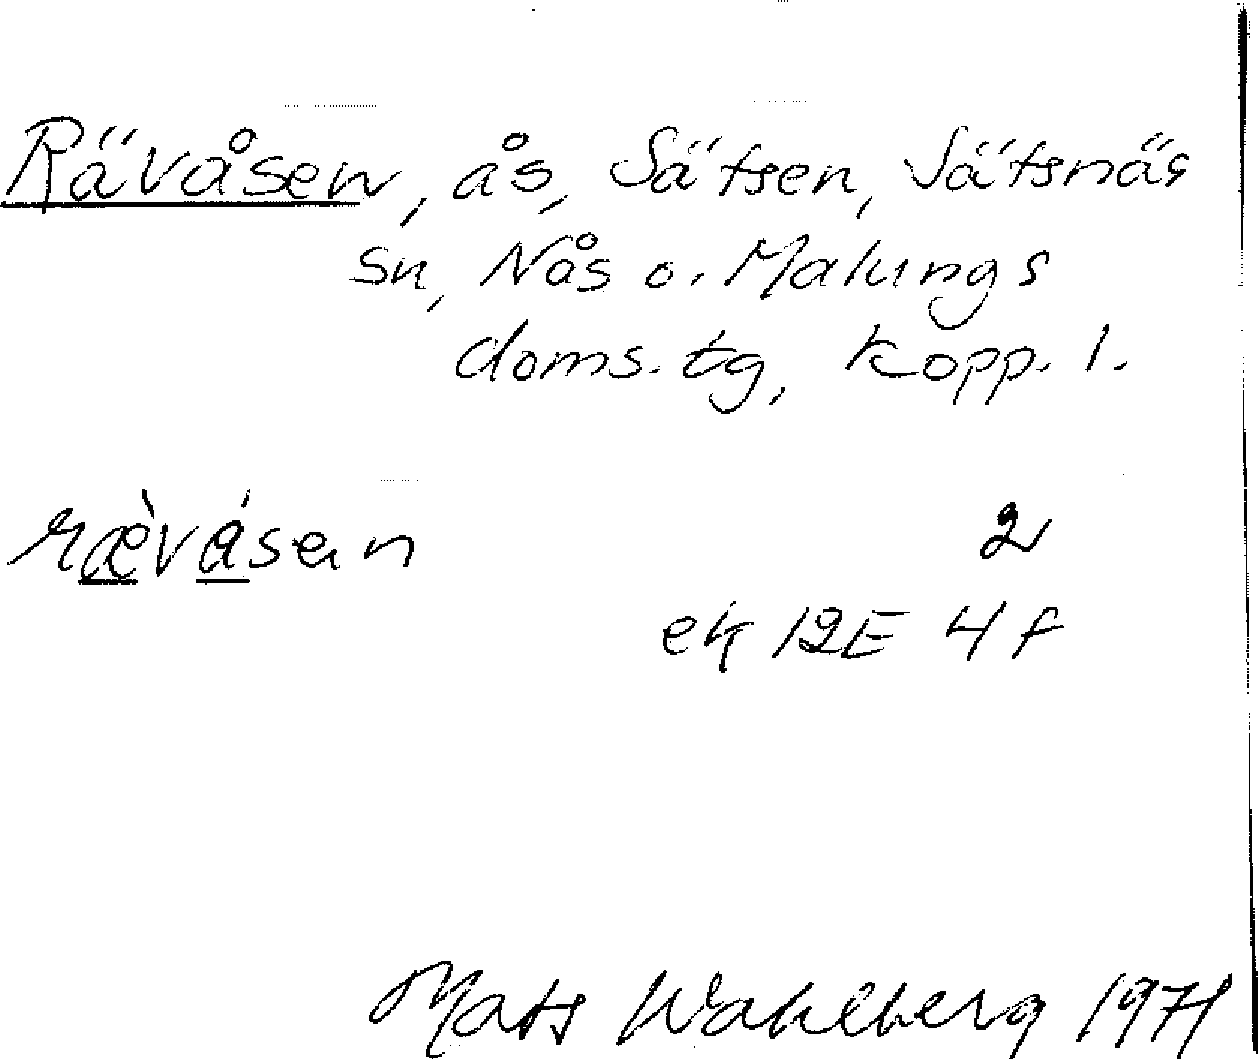 Räväsen, ås, Sätsen, Sätsnäs
sn, Nås o. Malungs
doms. tg, Kopp. l.
ræ̀vásen 2
ek 12E 4f
Mats Wahlberg 1971